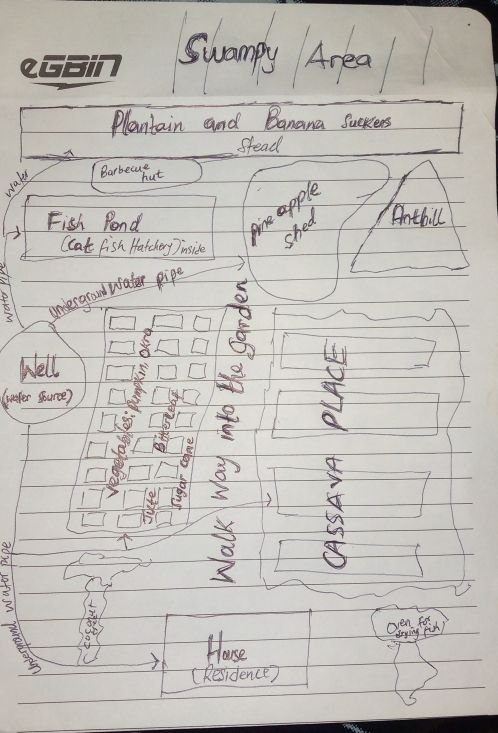 eGBIN
Swampy Area
Plantain and Banana Suckers
Stead
Water
Barbecue
hut
Fish Pond
(Cat fish Hatchery) inside
Pineapple
Shed
Anthill
Water Pipe
Underground Water pipe
Well
(water source)
Vegetables: Pumpkin, Okra
Jute Bitterleaf
Sugar cane
Walk Way into the garden
CASSAVA PLACE
Underground Water pipe
Coconut
tree
House
(Residence)
Oven for
drying fish